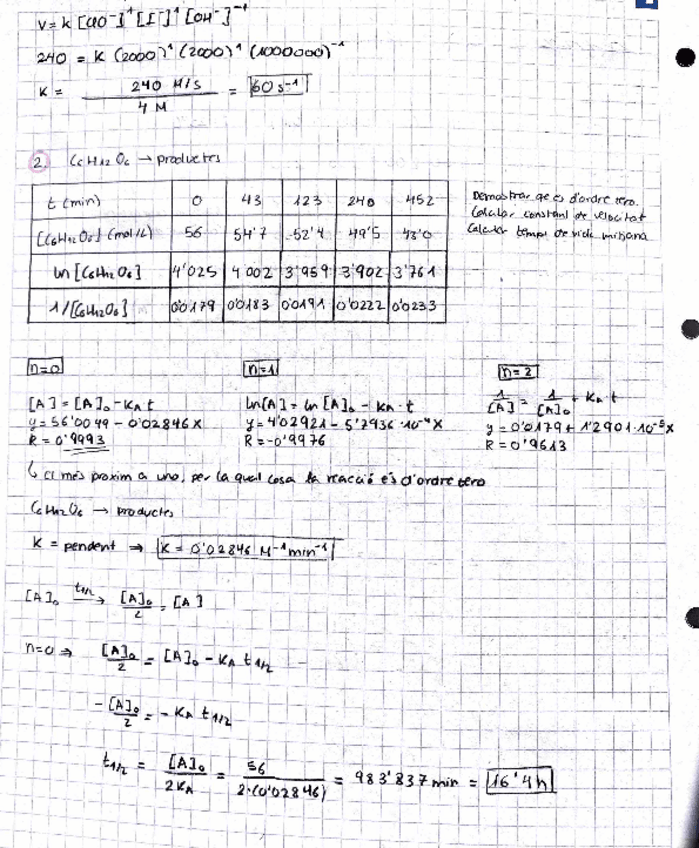 V = k [ClO⁻]¹ [I⁻]¹ [OH⁻]⁻¹
240 = K (2000)¹ (2000)¹ (1000000)⁻¹
K = 240 M/s / 4 M = 60 s⁻¹
2. C6H12O6 → productes
t (min) 0 43 123 240 452
[C6H12O6] (mol/L) 56 54'7 52'4 49'5 43'0
ln [C6H12O6] 4'025 4'002 3'959 3'902 3'761
1/[C6H12O6] 0'0179 0'0183 0'0191 0'0222 0'0233
Demostrar que és d'ordre zero.
Calcular constant de velocitat
Calcular temps de vida mitjana
n=0
[A] = [A]₀ - KA t
y = 56'0049 - 0'02846 x
R = 0'9993
n=1
ln[A] = ln [A]₀ - KA · t
y = 4'02921 - 5'7936 · 10⁻⁴ x
R = -0'9976
n=2
1/[A] = 1/[A]₀ + KA · t
y = 0'0179 + 1'2901 · 10⁻⁵ x
R = 0'9613
↳ el més proxim a uno, per la qual cosa la reacció és d'ordre zero
C6H12O6 → productes
K = pendent ⇒ K = 0'02846 M⁻¹ min⁻¹
[A]₀ t1/2 → [A]₀/2 = [A]
n=0 ⇒ [A]₀/2 = [A]₀ - KA t1/2
-[A]₀/2 = - KA t1/2
t1/2 = [A]₀/2KA = 56/2·(0'02846) = 983'837 min = 16'4 h